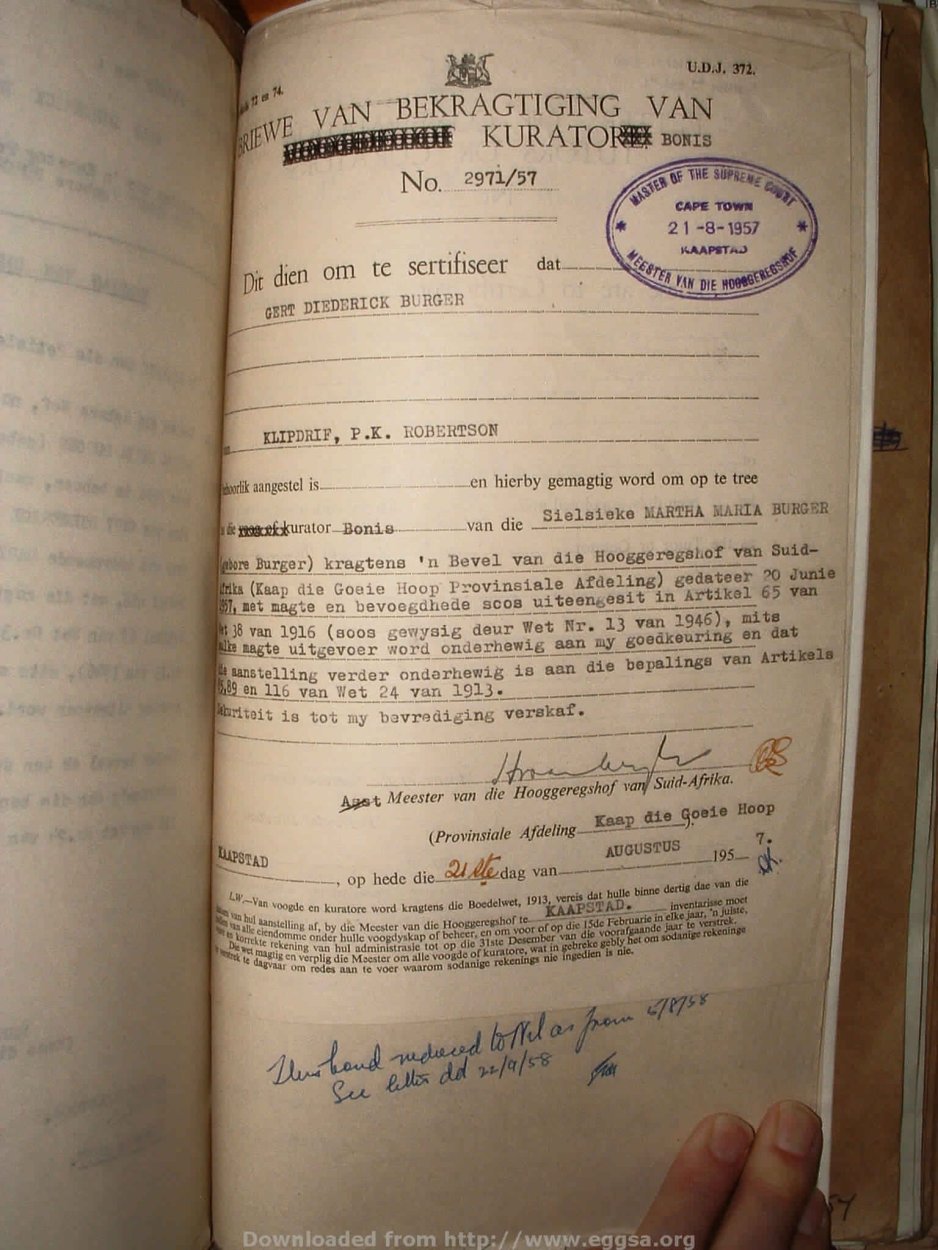 U.D.J. 372.
72 en 74.
BRIEWE VAN BEKRAGTIGING VAN
KURATOR BONIS
No. 2971/57
MASTER OF THE SUPREME COURT
CAPE TOWN
21-8-1957
KAAPSTAD
MEESTER VAN DIE HOOGGEREGSHOF
Dit dien om te sertifiseer dat
GERT DIEDERICK BURGER
KLIPDRIF, P.K. ROBERTSON
hoorlik aangestel is en hierby gemagtig word om op te tree
die kurator Bonis van die Sielsieke MARTHA MARIA BURGER
gebore Burger) kragtens 'n Bevel van die Hooggeregshof van Suid-
frika (Kaap die Goeie Hoop Provinsiale Afdeling) gedateer 20 Junie
957, met magte en bevoegdhede soos uiteengesit in Artikel 65 van
et 38 van 1916 (soos gewysig deur Wet Nr. 13 van 1946), mits
alke magte uitgevoer word onderhewig aan my goedkeuring en dat
ie aanstelling verder onderhewig is aan die bepalings van Artikels
,89 en 116 van Wet 24 van 1913.
ekuriteit is tot my bevrediging verskaf.
Asst Meester van die Hooggeregshof van Suid-Afrika.
(Provinsiale Afdeling Kaap die Goeie Hoop ).
KAAPSTAD, op hede die 21ste dag van AUGUSTUS 195 7.
L.W.—Van voogde en kuratore word kragtens die Boedelwet, 1913, vereis dat hulle binne dertig dae van die
datum van hul aanstelling af, by die Meester van die Hooggeregshof te KAAPSTAD. inventarisse moet
van alle eiendomme onder hulle voogdyskap of beheer, en om voor of op die 15de Februarie in elke jaar, 'n juiste,
en korrekte rekening van hul administrasie tot op die 31ste Desember van die voorafgaande jaar te verstrek.
Die wet magtig en verplig die Meester om alle voogde of kuratore, wat in gebreke gebly het om sodanige rekeninge
verstrek te dagvaar om redes aan te voer waarom sodanige rekenings nie ingedien is nie.
bond reduced to Nil as from 5/8/58
See letter dd 22/9/58
Downloaded from http://www.eggsa.org